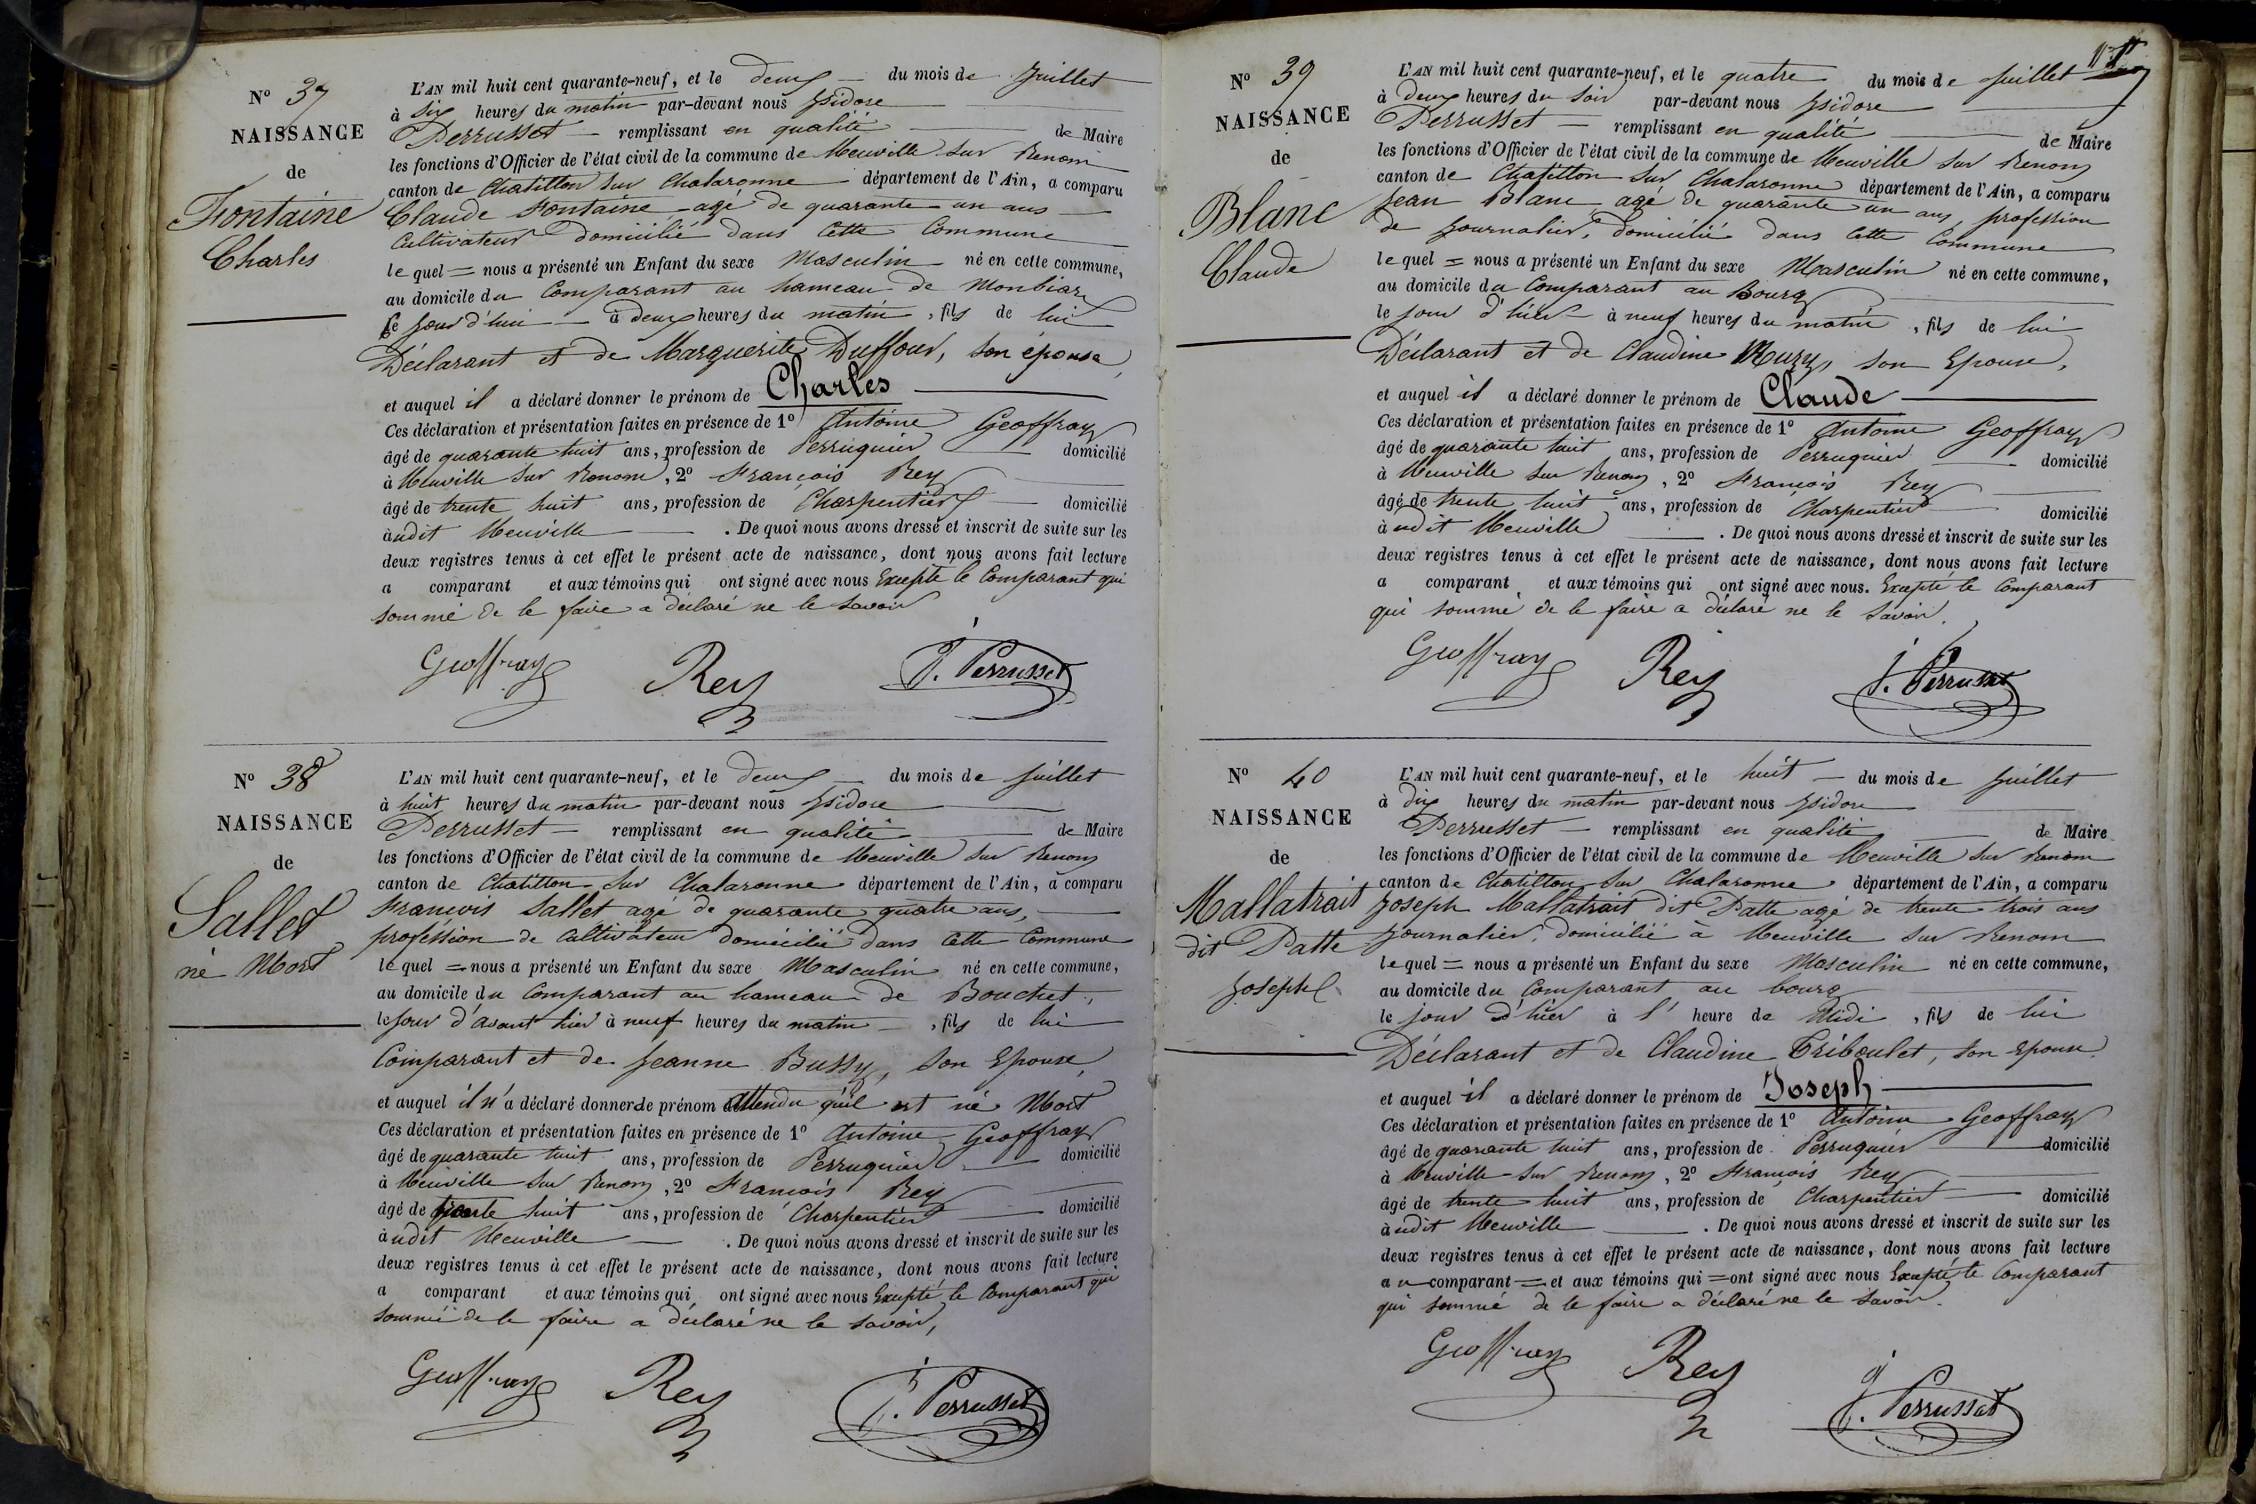 N° 37
NAISSANCE
de
Fontaine
Charles
L'AN mil huit cent quarante-neuf, et le deux du mois de Juillet
à six heures du matin par-devant nous Isidore
Perrusset remplissant en qualité de Maire
les fonctions d'Officier de l'état civil de la commune de Neuville sur Renom
canton de Chatillon sur Chalaronne département de l'Ain, a comparu
Claude Fontaine agé de quarante un ans
Cultivateur domicilié dans cette Commune
le quel = nous a présenté un Enfant du sexe Masculin né en cette commune,
au domicile du Comparant au hameau de Monbiar
le jour d'hui à deux heures du matin, fils de lui
Déclarant et de Marguerite Duffour, son épouse,
et auquel il a déclaré donner le prénom de Charles
Ces déclaration et présentation faites en présence de 1° Antoine Geoffray
âgé de quarante huit ans, profession de Perruquier domicilié
à Neuville sur Renom, 2° François Rey
âgé de trente huit ans, profession de Charpentier domicilié
àudit Neuville. De quoi nous avons dressé et inscrit de suite sur les
deux registres tenus à cet effet le présent acte de naissance, dont nous avons fait lecture
a comparant et aux témoins qui ont signé avec nous Excepté le Comparant qui
sommé de le faire a déclaré ne le savoir
Geoffray Rey J. Perrusset
N° 38
NAISSANCE
de
Sallet
né Mort
L'AN mil huit cent quarante-neuf, et le deux du mois de Juillet
à huit heures du matin par-devant nous Isidore
Perrusset remplissant en qualité de Maire
les fonctions d'Officier de l'état civil de la commune de Neuville sur Renom
canton de Chatillon sur Chalaronne département de l'Ain, a comparu
Francois Sallet agé de quarante quatre ans,
profession de Cultivateur domicilié dans cette Commune
le quel = nous a présenté un Enfant du sexe Masculin né en cette commune,
au domicile du Comparant au hameau de Bouchet,
le jour d'avant hier à neuf heures du matin, fils de lui
Comparant et de Jeanne Bussy, son Epouse,
et auquel il n'a déclaré donner de prénom attendu qu'il est né Mort
Ces déclaration et présentation faites en présence de 1° Antoine Geoffray
âgé de quarante huit ans, profession de Perruquier domicilié
à Neuville sur Renom, 2° Francois Rey
âgé de trente huit ans, profession de Charpentier domicilié
àudit Neuville. De quoi nous avons dressé et inscrit de suite sur les
deux registres tenus à cet effet le présent acte de naissance, dont nous avons fait lecture
a comparant et aux témoins qui ont signé avec nous Excepté le Comparant qui
sommé de le faire a déclaré ne le savoir,
Geoffray Rey J. Perrusset
N° 39
NAISSANCE
de
Blanc
Claude
L'AN mil huit cent quarante-neuf, et le quatre du mois de Juillet
à deux heures du soir par-devant nous Isidore
Perrusset remplissant en qualité de Maire
les fonctions d'Officier de l'état civil de la commune de Neuville sur Renom
canton de Chatillon sur Chalaronne département de l'Ain, a comparu
Jean Blanc agé de quarante un ans, profession
de Journalier, domicilié dans cette Commune
le quel = nous a présenté un Enfant du sexe Masculin né en cette commune,
au domicile du Comparant au Bourg
le jour d'hier à neuf heures du matin, fils de lui
Déclarant et de Claudine son Epouse,
et auquel il a déclaré donner le prénom de Claude
Ces déclaration et présentation faites en présence de 1° Antoine Geoffray
âgé de quarante huit ans, profession de Perruquier domicilié
à Neuville sur Renom, 2° François Rey
âgé de trente huit ans, profession de Charpentier domicilié
àudit Neuville. De quoi nous avons dressé et inscrit de suite sur les
deux registres tenus à cet effet le présent acte de naissance, dont nous avons fait lecture
a comparant et aux témoins qui ont signé avec nous. Excepté le Comparant
qui sommé de le faire a déclaré ne le savoir.
Geoffray Rey J. Perrusset
N° 40
NAISSANCE
de
Mallatrait
dit Patte
Joseph
L'AN mil huit cent quarante-neuf, et le huit du mois de Juillet
à dix heures du matin par-devant nous Isidore
Perrusset remplissant en qualité de Maire
les fonctions d'Officier de l'état civil de la commune de Neuville sur Renom
canton de Chatillon sur Chalaronne département de l'Ain, a comparu
Joseph Mallatrait dit Patte agé de trente trois ans
Journalier, domicilié à Neuville sur Renom
le quel = nous a présenté un Enfant du sexe Masculin né en cette commune,
au domicile du Comparant au bourg
le jour d'hier à l'heure de Midi, fils de lui
Déclarant et de Claudine Triboulet, son Epouse.
et auquel il a déclaré donner le prénom de Joseph
Ces déclaration et présentation faites en présence de 1° Antoine Geoffray
âgé de quarante huit ans, profession de Perruquier domicilié
à Neuville sur Renom, 2° Francois Rey
âgé de trente huit ans, profession de Charpentier domicilié
àudit Neuville. De quoi nous avons dressé et inscrit de suite sur les
deux registres tenus à cet effet le présent acte de naissance, dont nous avons fait lecture
au comparant = et aux témoins qui = ont signé avec nous Excepté le Comparant
qui sommé de le faire a déclaré ne le savoir.
Geoffray Rey J. Perrusset